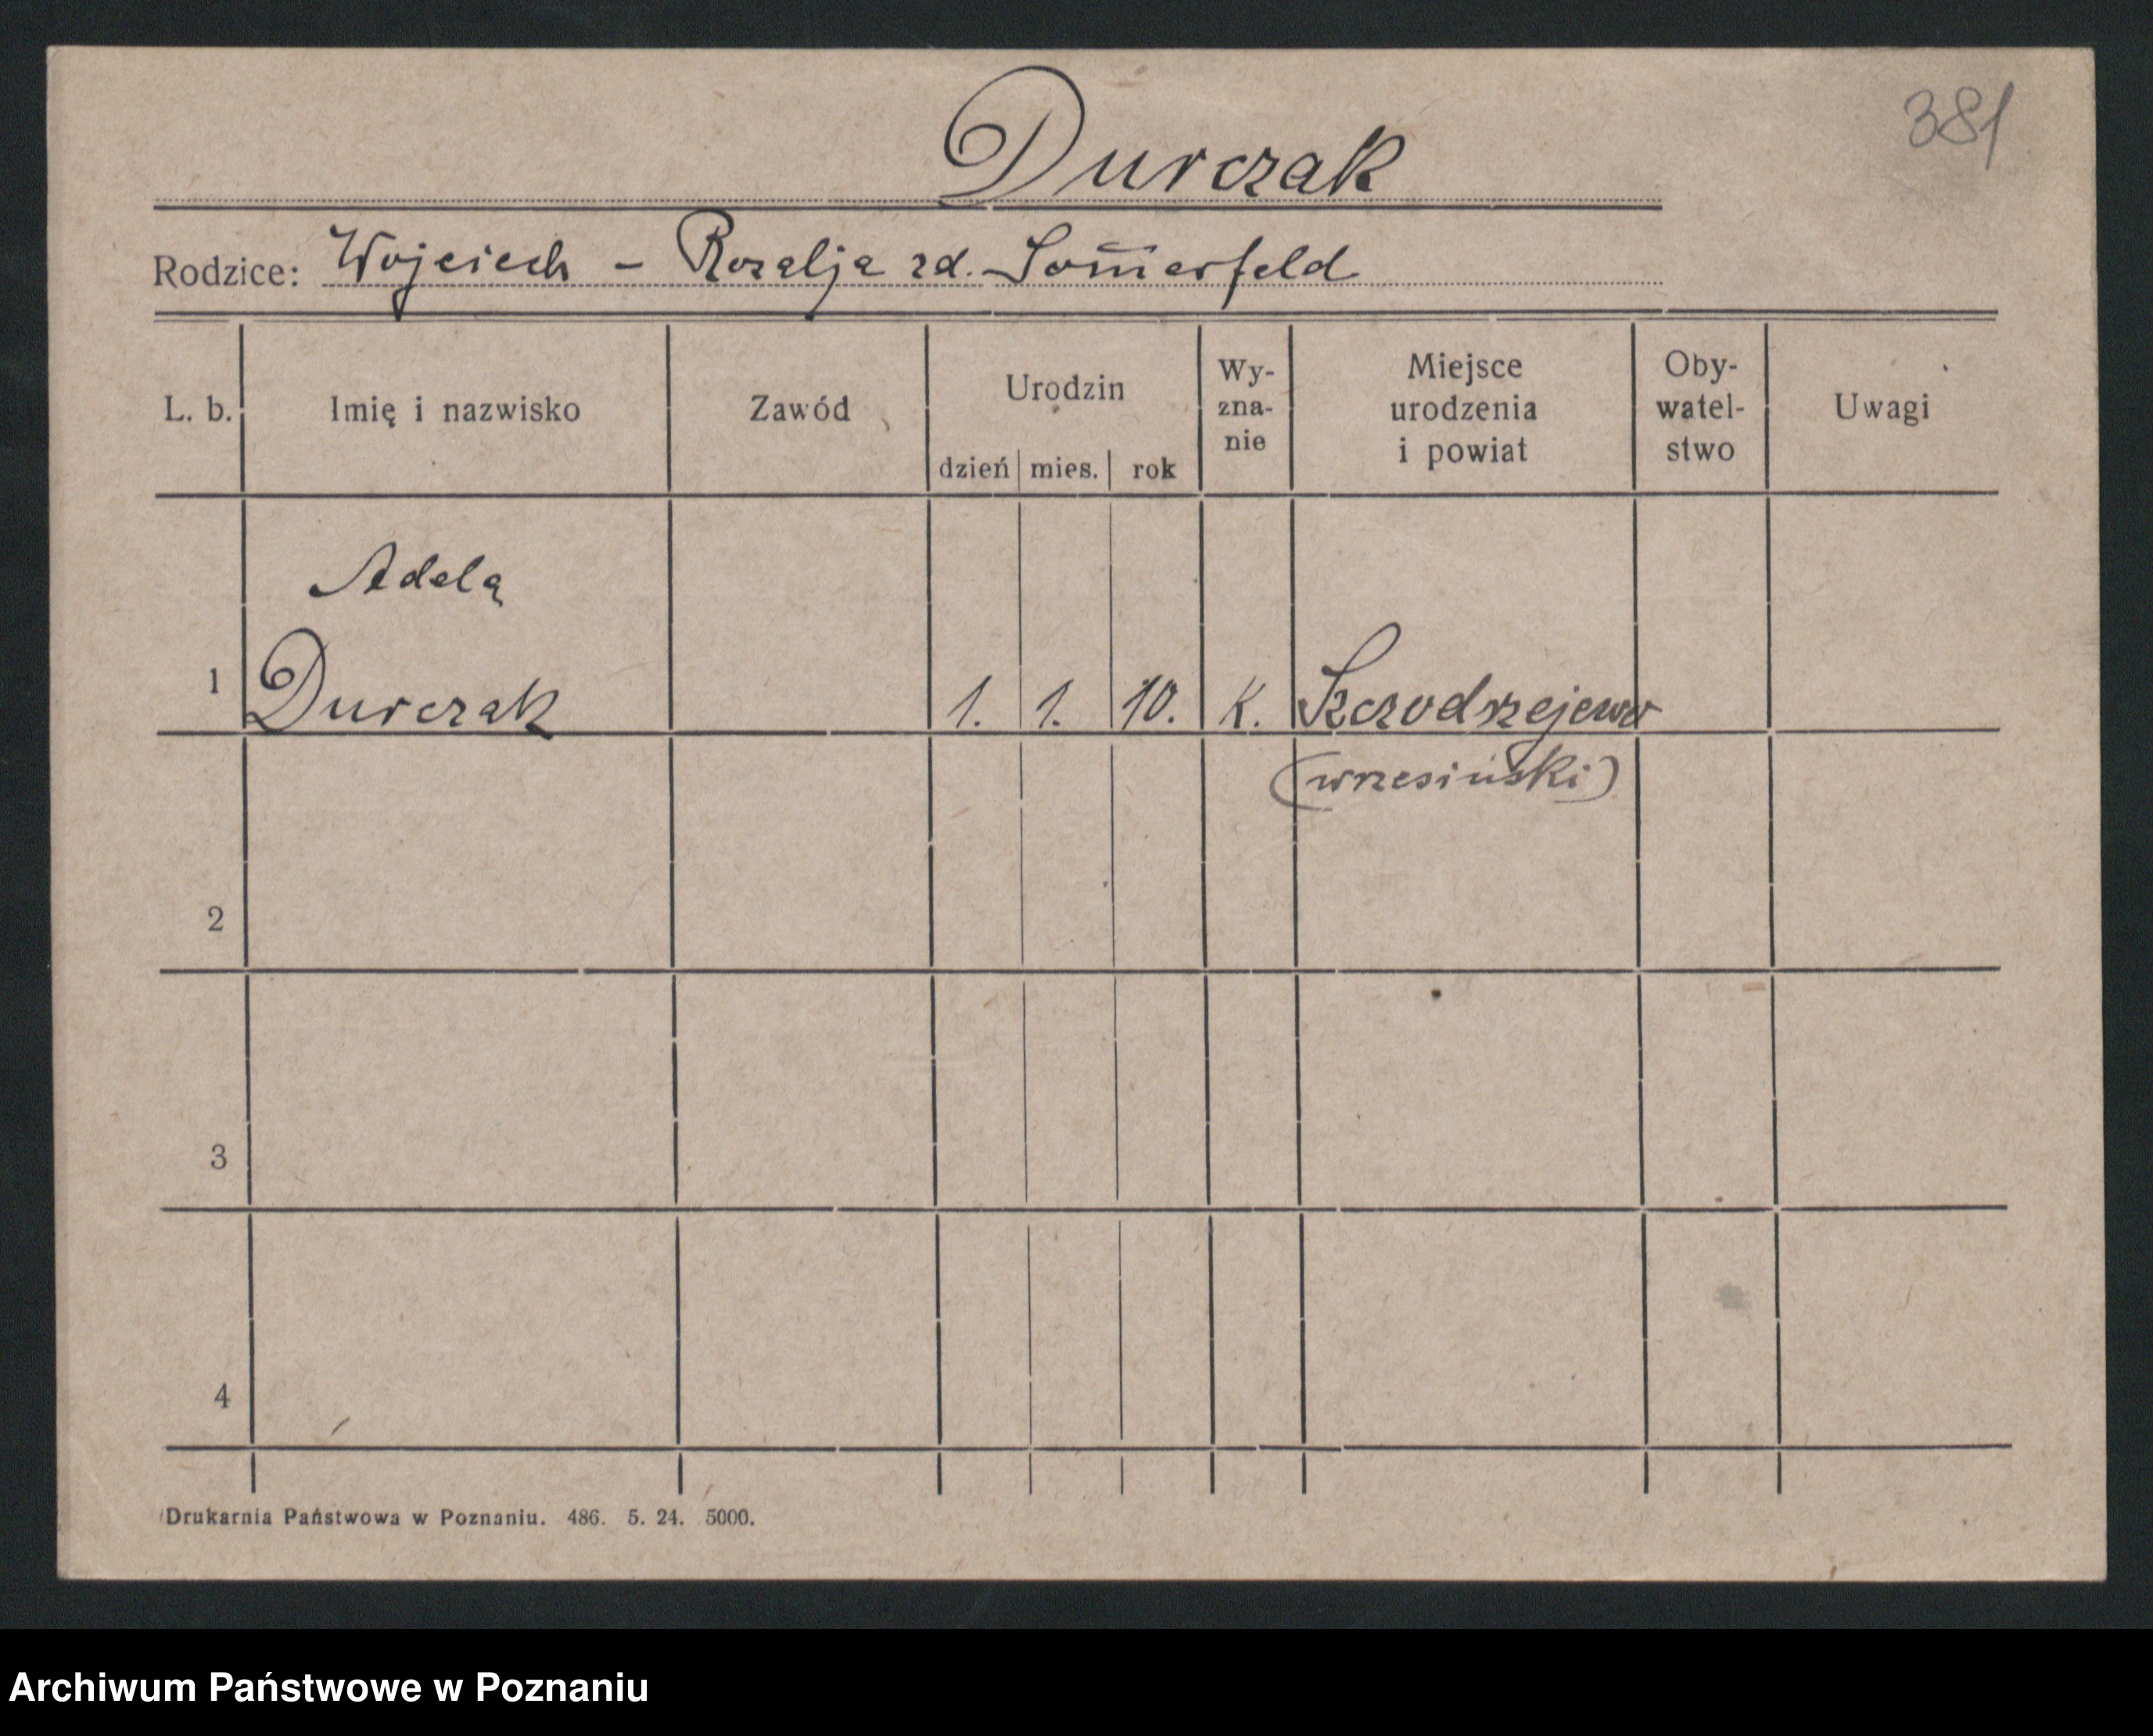 381
Durczak
Rodzice: Wojciech – Rozalja zd. Som̄erfeld
L. b. Imię i nazwisko Zawód Urodzin dzień mies. rok Wy-zna-nie Miejsce urodzenia i powiat Oby-watel-stwo Uwagi
Adela
1 Durczak 1. 1. 10. K. Szczodrzejewo
(wrzesiński)
2
3
4
Drukarnia Państwowa w Poznaniu. 486. 5. 24. 5000.
Archiwum Państwowe w Poznaniu